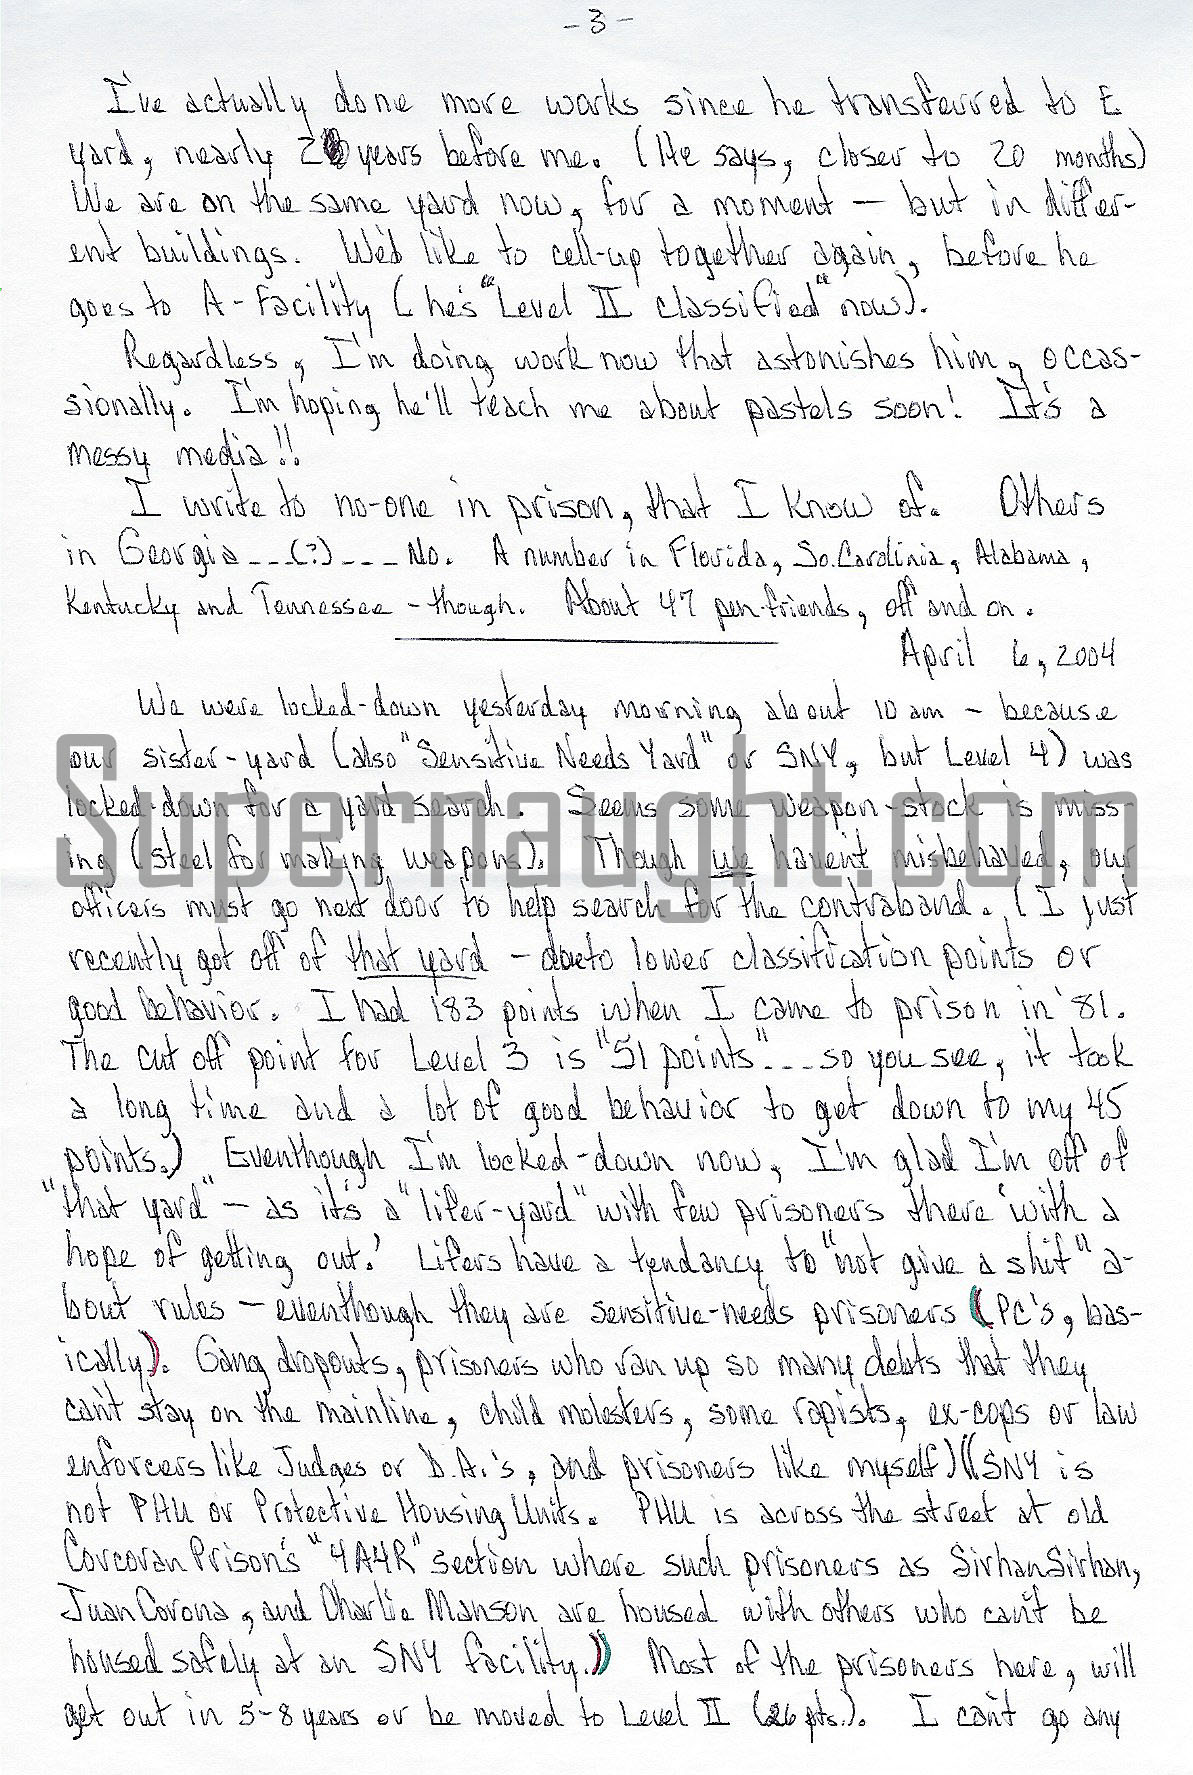 - 3 -
I've actually done more works since he transferred to E
yard, nearly 2 years before me. (He says, closer to 20 months)
We are on the same yard now, for a moment — but in differ-
ent buildings. We'd like to cell-up together again, before he
goes to A-Facility (he's "Level II classified" now).
Regardless, I'm doing work now that astonishes him, occas-
sionally. I'm hoping he'll teach me about pastels soon! It's a
messy media!!
I write to no-one in prison, that I know of. Others
in Georgia---(?)--- No. A number in Florida, So. Carolinia, Alabama,
Kentucky and Tennessee - though. About 47 pen-friends, off and on.
April 6, 2004
We were locked-down yesterday morning about 10 am - because
our sister-yard (also "Sensitive Needs Yard" or SNY, but Level 4) was
locked-down for a yard search. Seems some weapon-stock is miss-
ing (steel for making weapons). Though we haven't misbehaved, our
officers must go next door to help search for the contraband. (I just
recently got off of that yard - due to lower classification points or
good behavior. I had 183 points when I came to prison in '81.
The cut off point for Level 3 is "51 points"... so you see, it took
a long time and a lot of good behavior to get down to my 45
points.) Eventhough I'm locked-down now, I'm glad I'm off of
"that yard" - as it's a "lifer-yard" with few prisoners there 'with a
hope of getting out.' Lifers have a tendancy to "not give a shit" a-
bout rules - eventhough they are sensitive-needs prisoners (PC's, bas-
ically). Gang dropouts, prisoners who ran up so many debts that they
can't stay on the mainline, child molesters, some rapists, ex-cops or law
enforcers like Judges or D.A.'s, and prisoners like myself)((SNY is
not PHU or Protective Housing Units. PHU is across the street at old
Corcoran Prison's "4A4R" section where such prisoners as Sirhan Sirhan,
Juan Corona, and Charlie Manson are housed with others who can't be
housed safely at an SNY facility.)) Most of the prisoners here, will
get out in 5-8 years or be moved to Level II (26 pts.). I can't go any
Supernaught.com